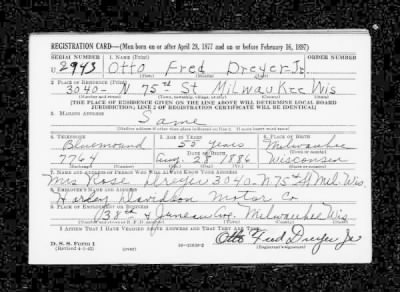 REGISTRATION CARD—(Men born on or after April 28, 1877 and on or before February 16, 1897)
SERIAL NUMBER 1. NAME (Print) ORDER NUMBER
U 2943 Otto Fred Dreyer Jr
(First) (Middle) (Last)
2. PLACE OF RESIDENCE (Print)
3040- N 75th St Milwaukee Wis
(Number and street) (Town, township, village, or city) (County) (State)
[THE PLACE OF RESIDENCE GIVEN ON THE LINE ABOVE WILL DETERMINE LOCAL BOARD
JURISDICTION; LINE 2 OF REGISTRATION CERTIFICATE WILL BE IDENTICAL]
3. MAILING ADDRESS
Same
[Mailing address if other than place indicated on line 2. If same insert word same]
4. TELEPHONE 5. AGE IN YEARS 6. PLACE OF BIRTH
Bluemound 55 years Milwaukee
DATE OF BIRTH (Town or county)
7764 Aug. 28 1886 Wisconsin
(Exchange) (Number) (Mo.) (Day) (Yr.) (State or country)
7. NAME AND ADDRESS OF PERSON WHO WILL ALWAYS KNOW YOUR ADDRESS
Mrs Rose Dreyer 3040. N. 75th St Mil. Wis.
8. EMPLOYER'S NAME AND ADDRESS
Harley Davidson Motor Co
9. PLACE OF EMPLOYMENT OR BUSINESS
38th & Juneau Av. Milwaukee Wis
(Number and street or R. F. D. number) (Town) (County) (State)
I AFFIRM THAT I HAVE VERIFIED ABOVE ANSWERS AND THAT THEY ARE TRUE.
D. S. S. Form 1
(Revised 4-1-42)
Otto Fred Dreyer Jr